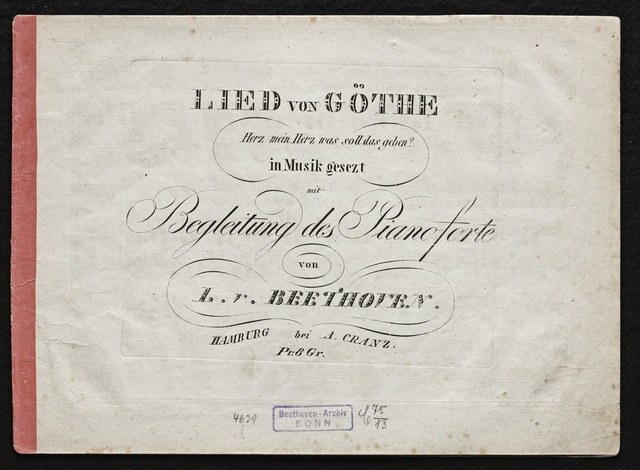 LIED VON GÖTHE
Herz mein Herz was soll das geben?
in Musik gesezt
mit
Begleitung des Pianoforte
von
L. v. BEETHOVEN.
HAMBURG bei A. CRANZ.
Pr. 6 Gr.
4639
Beethoven-Archiv
BONN
75
13